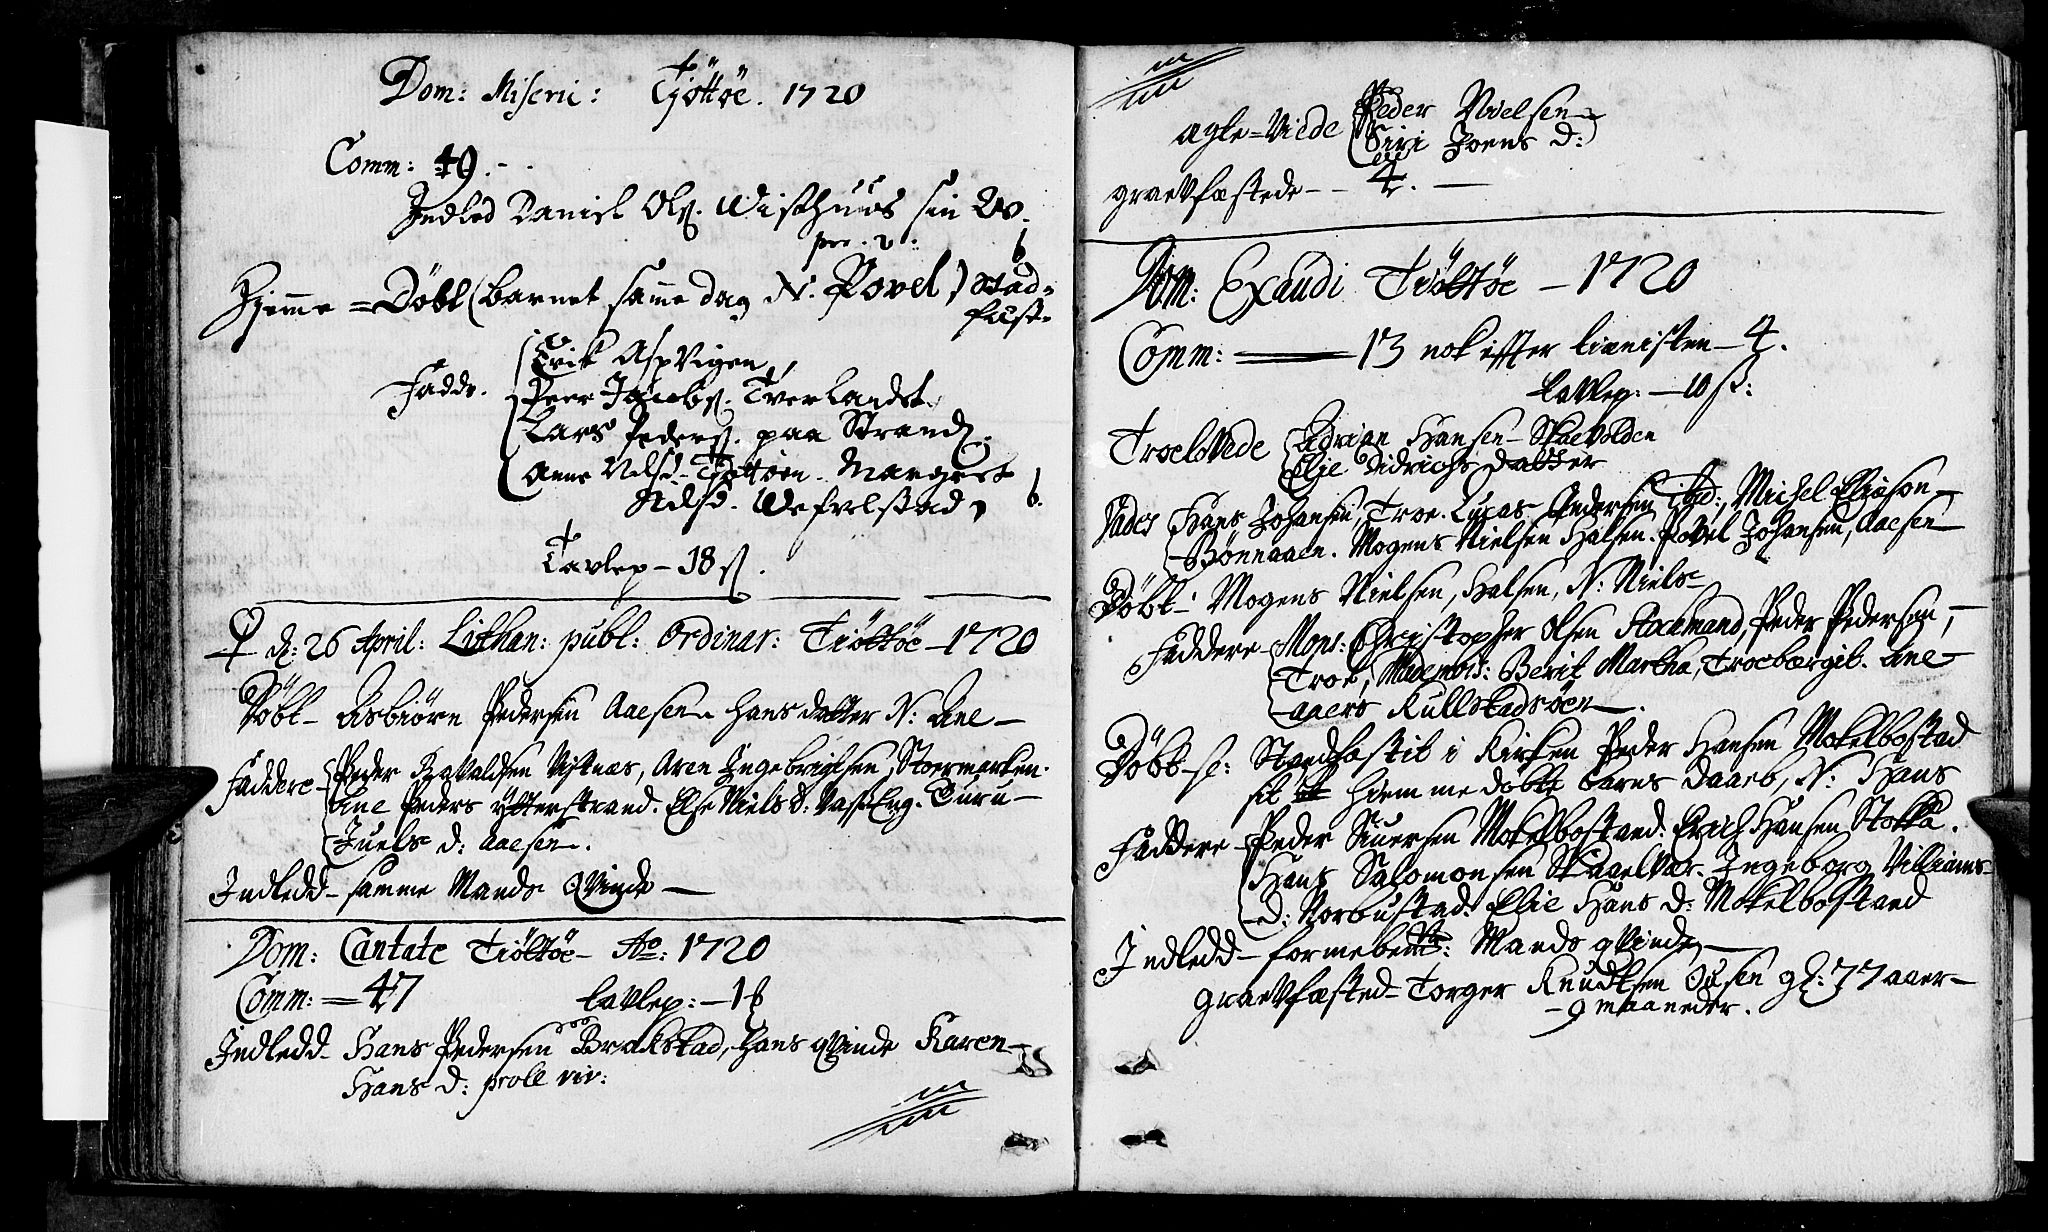 Dom: Miseric: Tjöttöe. 1720
Comm: 49.
Indled Daniel Ols. Wisthuus sin
Hjemme = Döbt (barnet samme dag N. Povel) stad-
fæst-
Fadde. Erik Aspvigen
Peer Jacobs. Tverlandet
Lars Peders. paa Strand
Anne Nelsd. Tjöttöen. Margret
Nelsd. Wefvelstad
Tavlep - 18 s.
d: 26 April: Lithan: publ: Ordinar: Tiöttöe - 1720
Döbt - Asbiörn Pedersen Aaesen hans datter N: Ane -
Faddere - Peder Ravaldsen Vistnæs, Aren Ingebrigtsen, Stoermarken.
Ane Peders ÿtterstrand. Else Niels d: Vasseng. Turu -
Juels d: Aaesen.
Indledd - samme Mands Qvinde -
Dom: Cantate Tiöttöe - Ao: 1720
Comm: - 47 tavlep: - 1
Indledd - Hans Pedersen Brækstad, hans qvinde Karen -
Hans d: proll viv:
agte = Viede Peder Nielsen
Siri Joens d:
graevfæstede - - 4. -
Dom: Exaudi Tiöttöe - 1720
Comm: 13 nok effter - 4.
tavlep: - 10 s:
Troelovede Adrian Hansen - Skaevolden
Elie Didrichs datter
Fades Hans Johansen, Troe. Lucas Andersen ibid:, Michel Eliæson -
- Bönnaaen. Mogens Nielsen Halsen. Povel Johansen, Aaesen
Döbt - Mogens Nielsen, Halsen, N: Niels -
Faddere - Mons: Christopher Olsen Stockmand, Peder Pedersen, -
Troe, Berit Martha, Troebærgit. Ane -
- Aaers Kullstadsöen -.
Döbt - Stædfæstit i Kirken Peder Hansen Mokelbostad
sit hiemme döbte barns daaeb, N: Hans
Faddere - Peder Siversen Mokelbostaed. Erich Hansen Stokka.
Hans Salomonsen Skaaelvær. Ingeborg Villiams -
- d: Norbustad. Elie Hans d: Mokelbostaed
Indledd - formebem: Mands qvinde -
graevfæsted - Torger Knudtsen gl: 77 aaer -
- 9 maaneder.